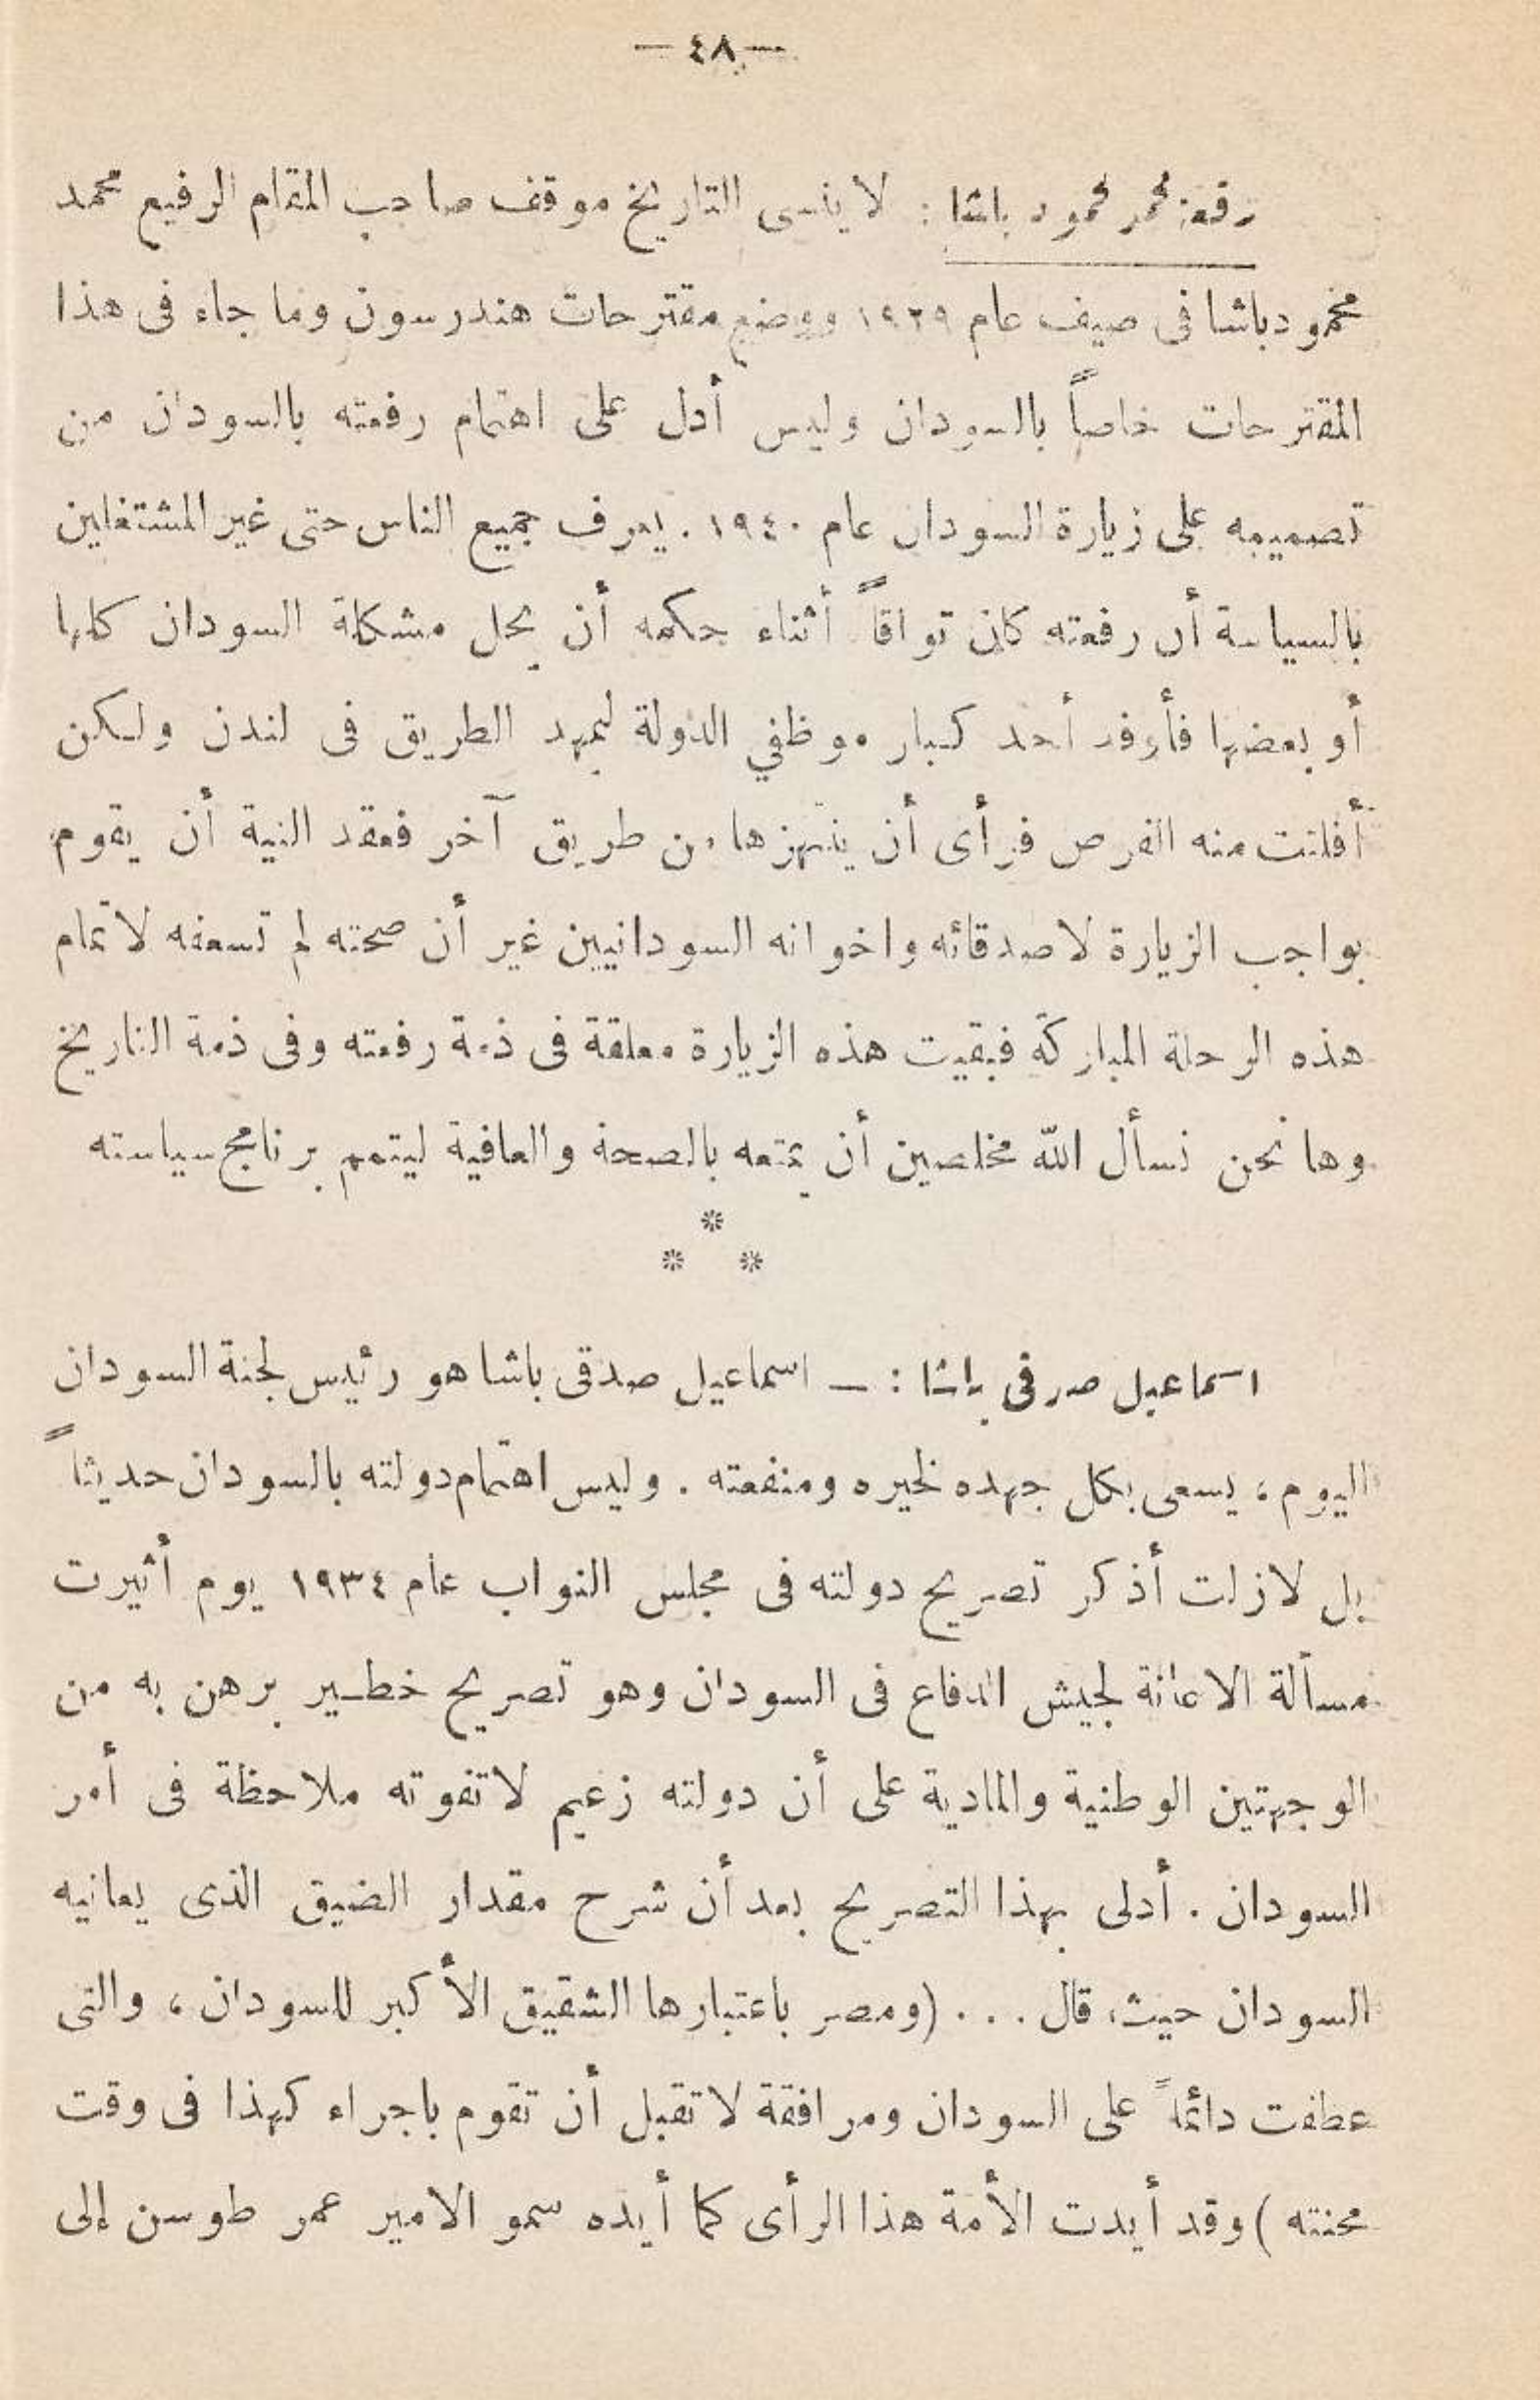 — ٤٨ —
رفعة محمد محمود باشا : لا ينسى التاريخ موقف صاحب المقام الرفيع محمد
محمود باشا فى صيف عام ١٩٢٩ ووضع مقترحات هندرسون وما جاء فى هذا
المقترحات خاصاً بالسودان وليس أدل على اهتمام رفعته بالسودان من
تصميمه على زيارة السودان عام ١٩٤٠ . يعرف جميع الناس حتى غير المشتغلين
بالسياسة أن رفعته كان تواقاً أثناء حكمه أن يحل مشكلة السودان كلها
أو بعضها فأوفد أحد كبار موظفي الدولة ليمهد الطريق فى لندن ولكن
أفلتت منه الفرص فرأى أن ينتهزها من طريق آخر فعقد النية أن يقوم
بواجب الزيارة لاصدقائه واخوانه السودانيين غير أن صحته لم تسعفه لاتمام
هذه الرحلة المباركة فبقيت هذه الزيارة معلقة فى ذمة رفعته وفى ذمة التاريخ
وها نحن نسأل الله مخلصين أن يمتعه بالصحة والعافية ليتمم برنامج سياسته
*
* *
اسماعيل صدقى باشا : — اسماعيل صدقى باشا هو رئيس لجنة السودان
اليوم ، يسعى بكل جهده لخيره ومنفعته . وليس اهتمام دولته بالسودان حديثاً
بل لازلت أذكر تصريح دولته فى مجلس النواب عام ١٩٣٤ يوم أثيرت
مسألة الاعانة لجيش الدفاع فى السودان وهو تصريح خطير برهن به من
الوجهتين الوطنية والمادية على أن دولته زعيم لاتفوته ملاحظة فى أمر
السودان . أدلى بهذا التصريح بعد أن شرح مقدار الضيق الذى يعانيه
السودان حيث قال . . . (ومصر باعتبارها الشقيق الأكبر للسودان ، والتى
عطفت دائماً على السودان ومرافقة لاتقبل أن تقوم باجراء كهذا فى وقت
محنته ) وقد أيدت الأمة هذا الرأى كما أيده سمو الامير عمر طوسن إلى